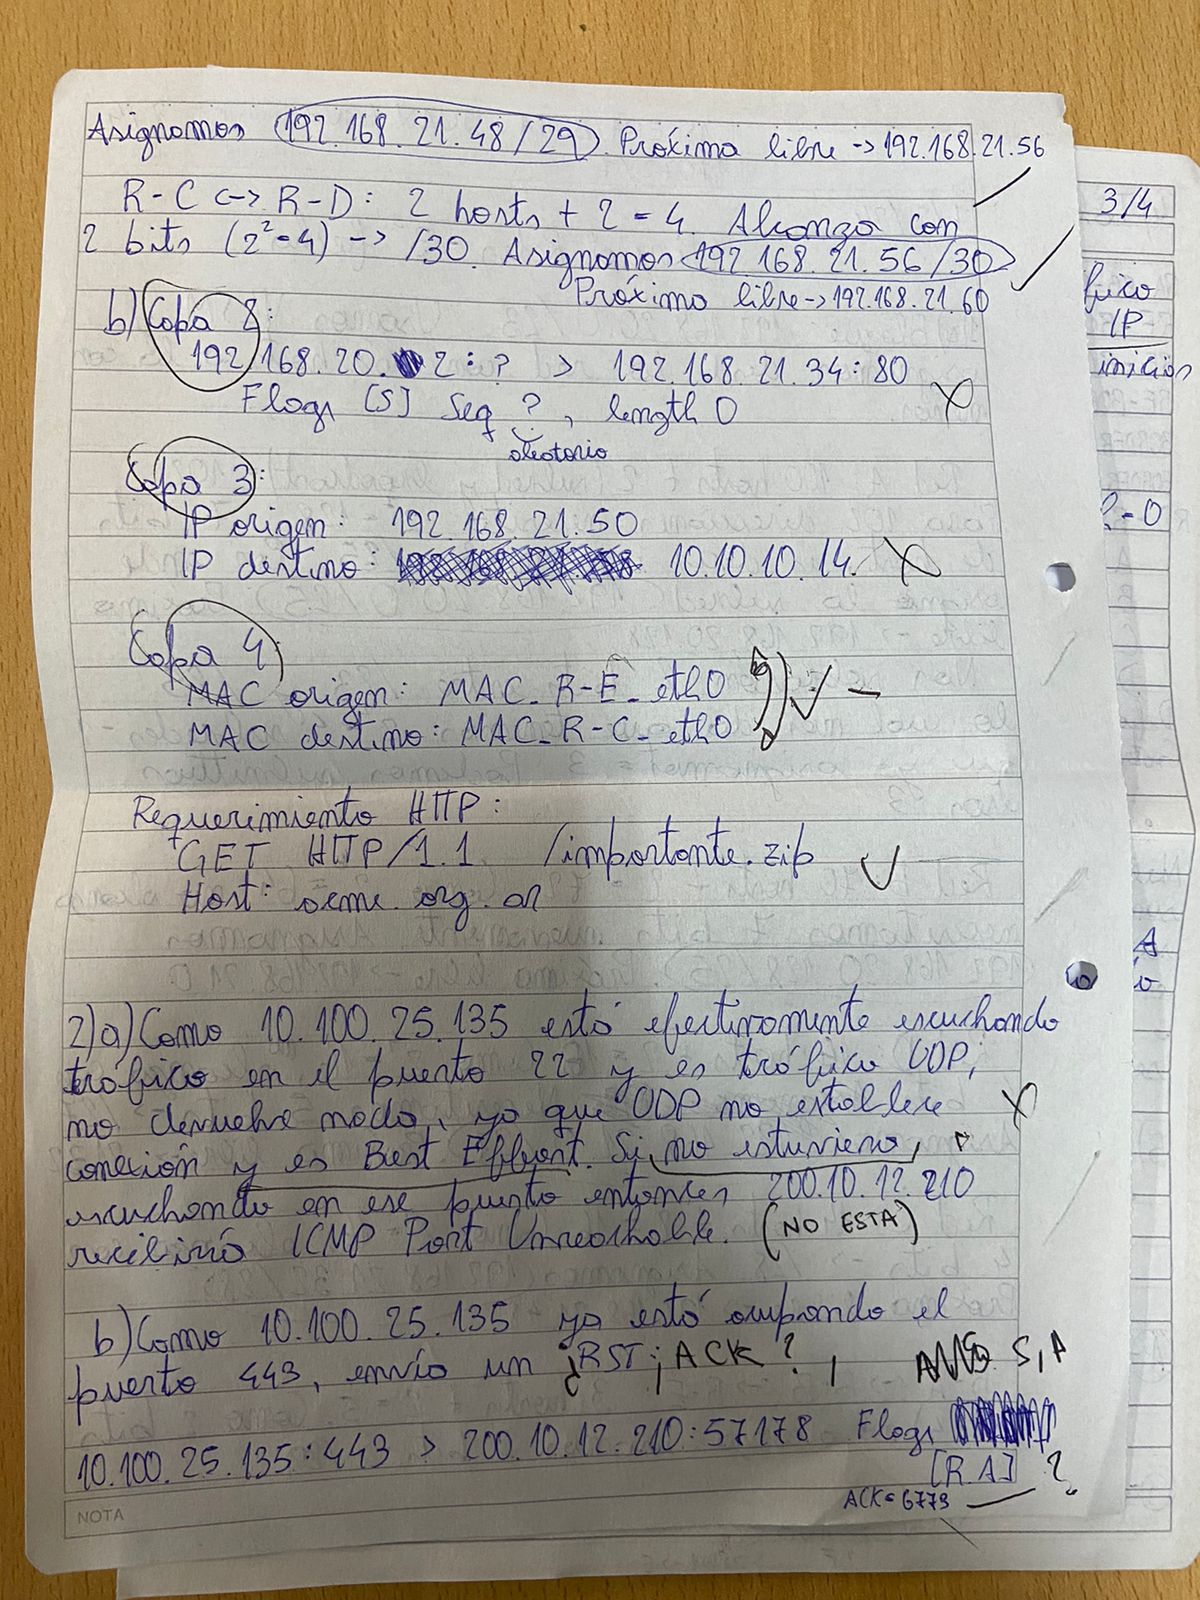 Asignamos 192.168.21.48/29. Próxima libre -> 192.168.21.56
R-C <-> R-D: 2 hosts + 2 = 4. Alcanza con
2 bits (2²=4) -> /30. Asignamos 192.168.21.56/30
Próxima libre -> 192.168.21.60
b) Capa 8:
192.168.20. 2 : ? > 192.168.21.34:80
Flags [S] Seq ?, length 0
aleatorio
Capa 3:
IP origen: 192.168.21.50
IP destino: 10.10.10.14.
Capa 4
MAC origen: MAC_R-E_eth0
MAC destino: MAC_R-C_eth0
Requerimiento HTTP:
GET HTTP/1.1 /importante.zip
Host: acme.org.ar
2)a) Como 10.100.25.135 está efectivamente escuchando
tráfico en el puerto 22 y es tráfico UDP,
no devuelve nada, ya que UDP no establece
conexión y es Best Effort. Si no estuviera,
escuchando en ese puerto entonces 200.10.12.210
recibiría ICMP Port Unreachable. (NO ESTA)
b) Como 10.100.25.135 ya está ocupando el
puerto 443, envía un ¿RST; ACK?, S, A
10.100.25.135:443 > 200.10.12.210:57178 Flags
[R.A] ?
ACK=6779
NOTA
3/4
IP